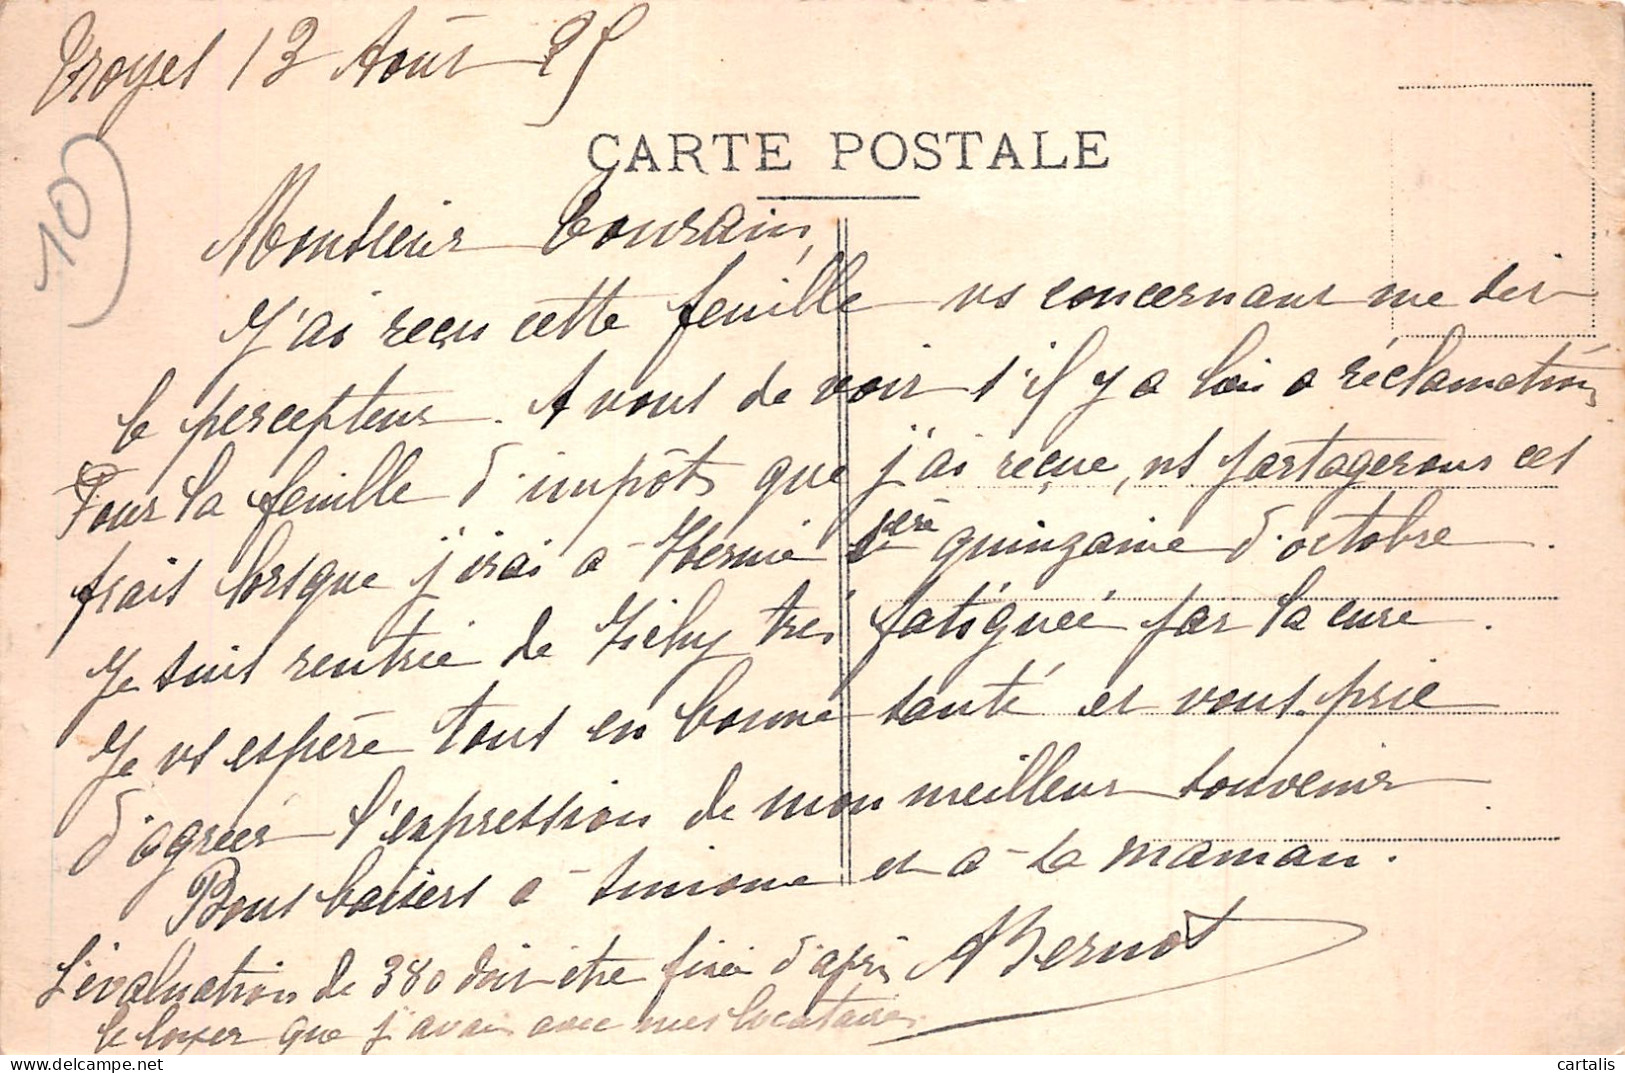 Troyes 13 Août 25
10
CARTE POSTALE
Monsieur Tourain,
J'ai reçu cette feuille vs concernant me dit
le percepteur. A vous de voir s'il y a lieu a réclamation,
Pour la feuille d'impôts que j'ai reçue, ns partagerons ces
frais lorsque j'irai a 1ère quinzaine d'octobre.
Je suis rentrée de Vichy très fatiguée par la cure.
Je vs espère tous en bonne santé et vous prie
d'agréer l'expression de mon meilleur souvenir
Bons baisers a Simone et a sa maman.
L'évaluation de 380 doit être fixée d'après ABernot
le loyer que j'avais avec mes locataires
cartalis